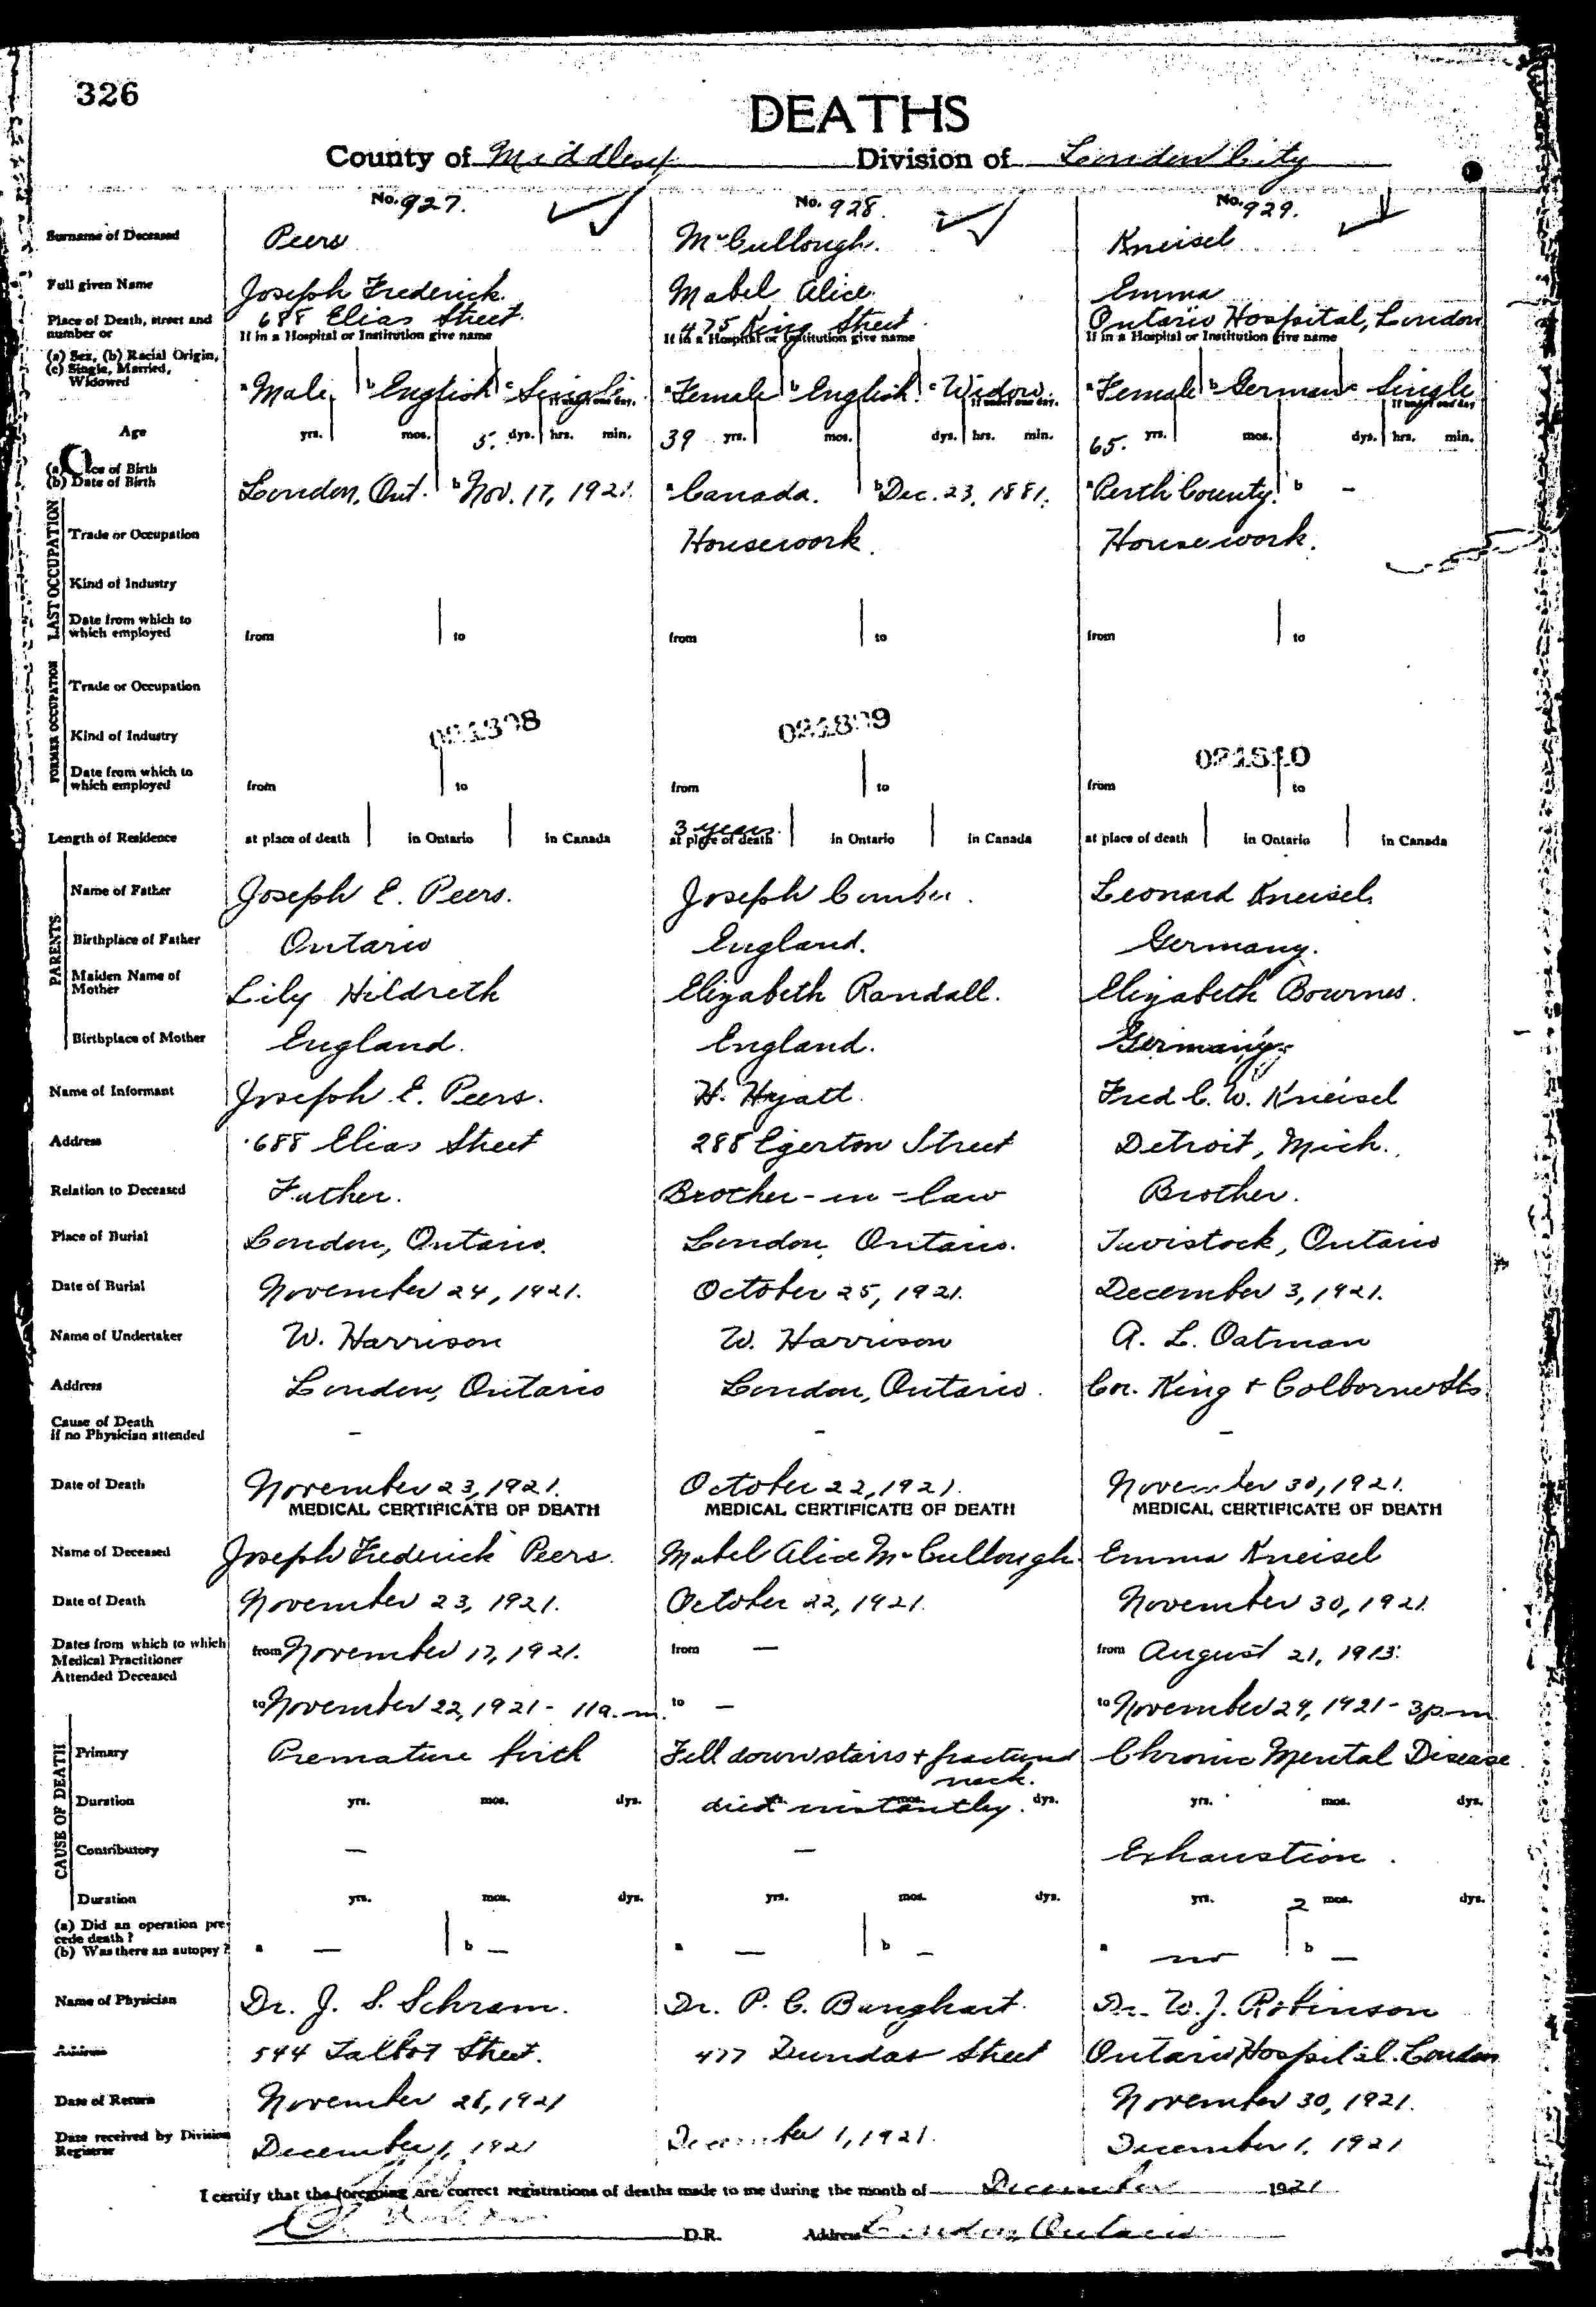 326
DEATHS
County of Middlesex Division of London City
No. 927. No. 928. No. 929.
Surname of Deceased Peers McCullough. Kneisel
Full given Name Joseph Frederick. Mabel Alice. Emma
Place of Death, street and number or 688 Elias Street. 475 King Street Ontario Hospital, London
If in a Hospital or Institution give name If in a Hospital or Institution give name If in a Hospital or Institution give name
(a) Sex, (b) Racial Origin, (c) Single, Married, Widowed a Male b English c Single a Female b English. c Widow. a Female b German c Single
If under one day. If under one day. If under one day
Age yrs. mos. 5. dys. hrs. min. 39 yrs. mos. dys. hrs. min. 65. yrs. mos. dys. hrs. min.
(a) Place of Birth (b) Date of Birth London, Ont. b Nov. 17, 1921. a Canada. b Dec. 23, 1881. a Perth County. b -
LAST OCCUPATION
Trade or Occupation Housework. Housework.
Kind of Industry
Date from which to which employed from to from to from to
FORMER OCCUPATION
Trade or Occupation
Kind of Industry
Date from which to which employed from to from to from to
Length of Residence at place of death in Ontario in Canada 3 years. at place of death in Ontario in Canada at place of death in Ontario in Canada
PARENTS
Name of Father Joseph E. Peers. Joseph Leonard Kneisel.
Birthplace of Father Ontario England. Germany.
Maiden Name of Mother Lily Hildreth Elizabeth Randall. Elizabeth Bournes.
Birthplace of Mother England. England. Germany.
Name of Informant Joseph E. Peers. H. Hyatt. Fred C. W. Kneisel
Address 688 Elias Street 288 Egerton Street Detroit, Mich.
Relation to Deceased Father. Brother-in-law Brother.
Place of Burial London, Ontario. London, Ontario. Tavistock, Ontario
Date of Burial November 24, 1921. October 25, 1921. December 3, 1921.
Name of Undertaker W. Harrison W. Harrison A. L. Oatman
Address London, Ontario London, Ontario. Cor. King + Colborne Sts
Cause of Death if no Physician attended - - -
Date of Death November 23, 1921. October 22, 1921. November 30, 1921.
MEDICAL CERTIFICATE OF DEATH MEDICAL CERTIFICATE OF DEATH MEDICAL CERTIFICATE OF DEATH
Name of Deceased Joseph Frederick Peers. Mabel Alice McCullough Emma Kneisel
Date of Death November 23, 1921. October 22, 1921. November 30, 1921
Dates from which to which Medical Practitioner Attended Deceased from November 17, 1921. from - from August 21, 1913.
to November 22, 1921 - 11 a.m. to - to November 29, 1921 - 3 p.m
CAUSE OF DEATH
Primary Premature birth Fell down stairs + fractured neck. Chronic Mental Disease.
Duration yrs. mos. dys. died instantly. yrs. mos. dys. yrs. mos. dys.
Contributory - - Exhaustion.
Duration yrs. mos. dys. yrs. mos. dys. yrs. 2 mos. dys.
(a) Did an operation precede death? (b) Was there an autopsy? a - b - a - b - a no b -
Name of Physician Dr. J. S. Schram. Dr. P. C. Banghart. Dr. W. J. Robinson
Address 544 Talbot Street. 477 Dundas Street Ontario Hospital. London
Date of Return November 28, 1921 November 30, 1921.
Date received by Division Registrar December 1, 1921 December 1, 1921. December 1, 1921
I certify that the foregoing are correct registrations of deaths made to me during the month of December 1921
D.R. Address London, Ontario